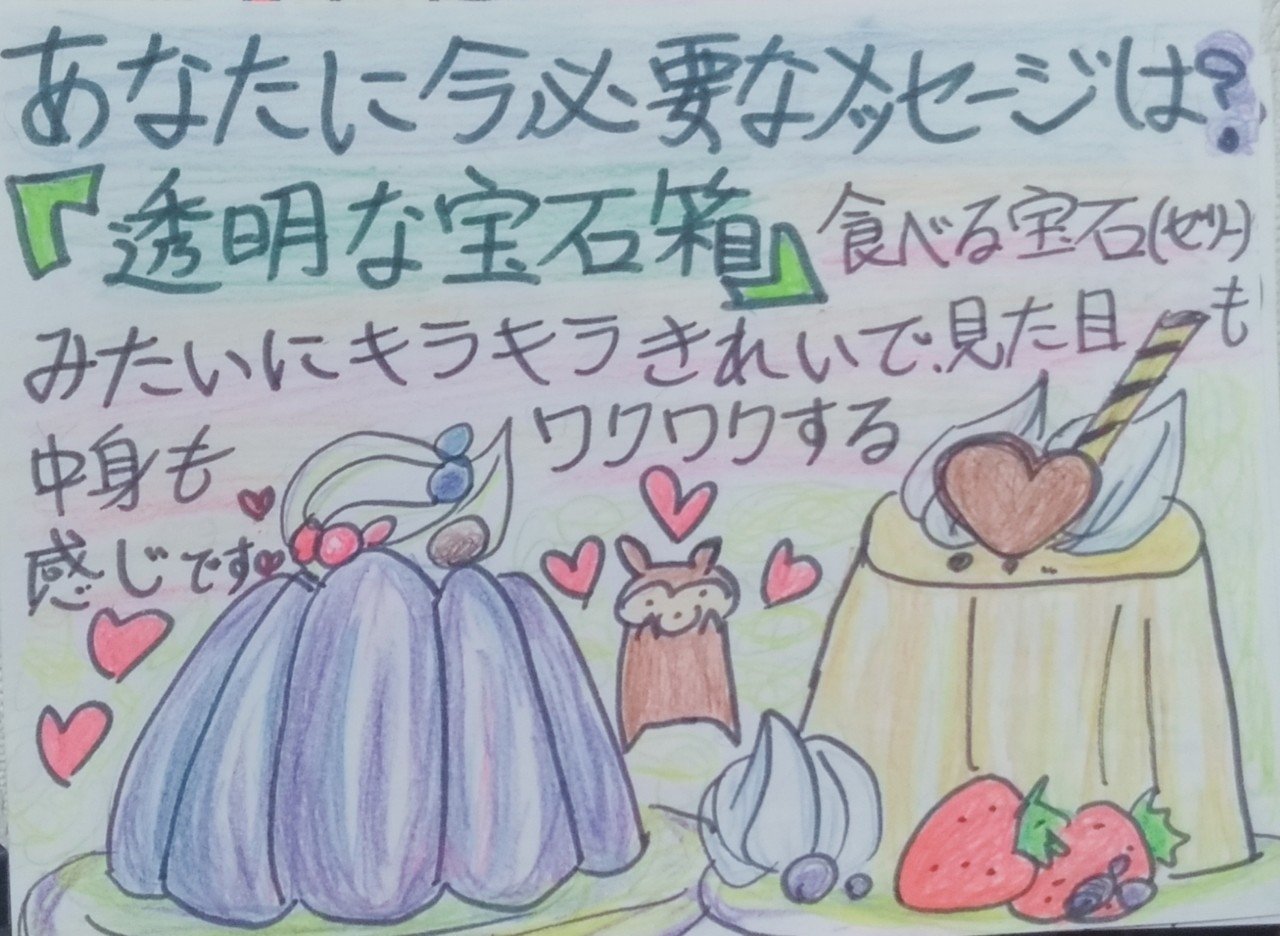 あなたに今必要なメッセージは?
『透明な宝石箱』食べる宝石(ゼリー)
みたいにキラキラきれいで、見た目も
中身もワクワクする
感じです